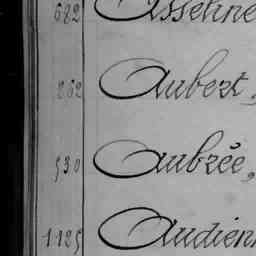 682 Asseline
862 Aubert,
530 Aubrée,
1125 Audien